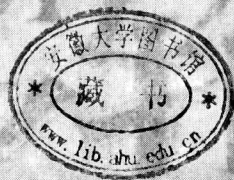 安徽大学图书馆
藏书
www.lib.ahu.edu.cn